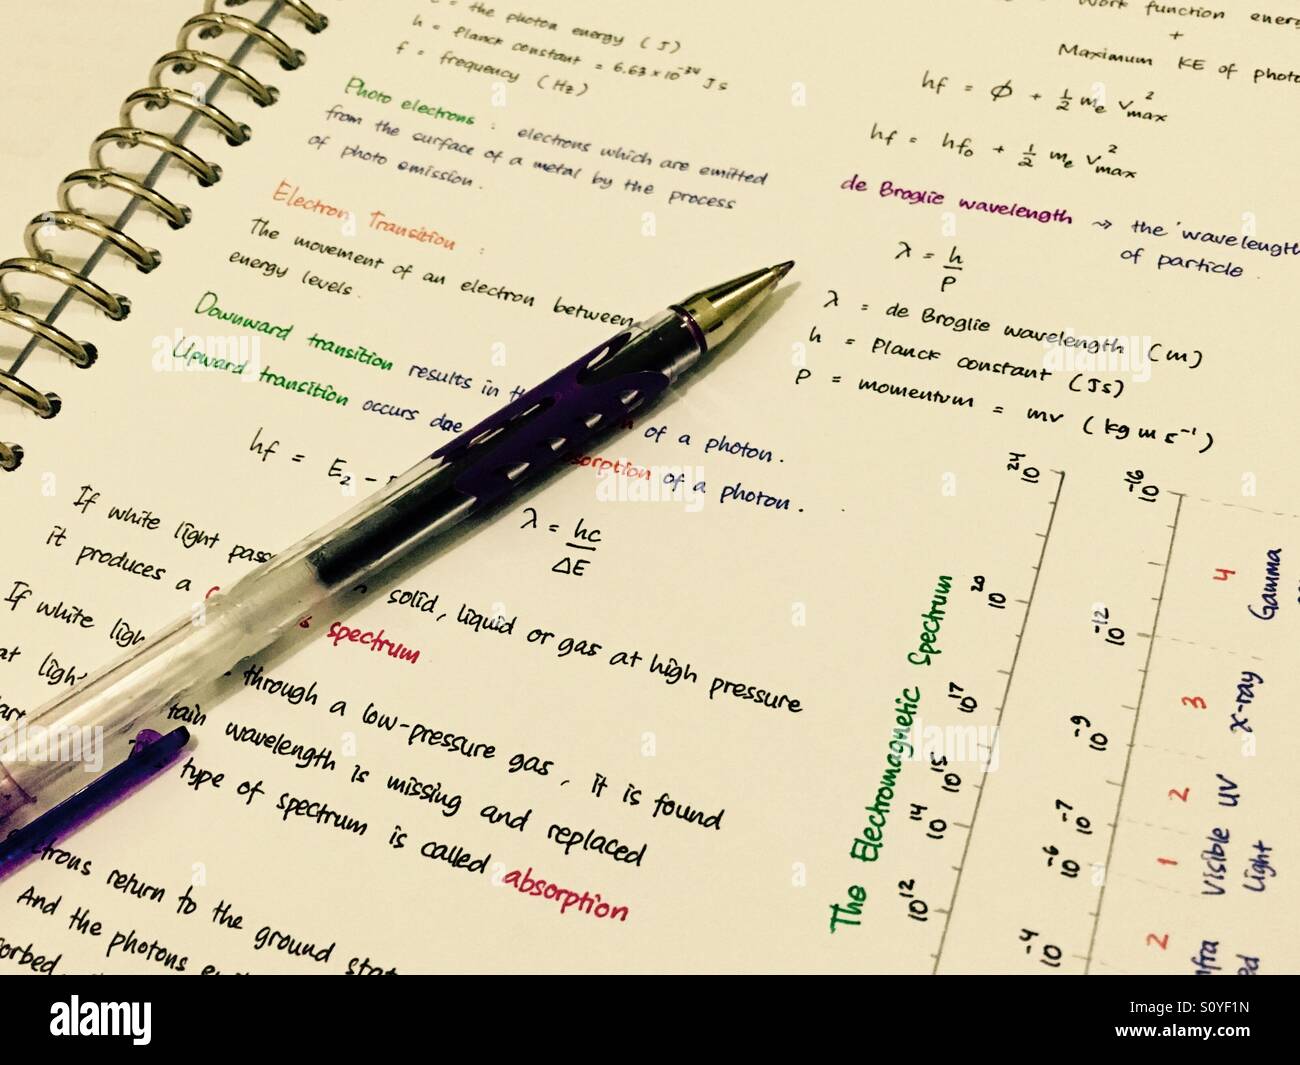 = the photon energy (J)
h = Planck constant = 6.63 × 10⁻³⁴ Js
f = frequency (Hz)
Photo electrons : electrons which are emitted
from the surface of a metal by the process
of photo emission.
Electron Transition :
The movement of an electron between
energy levels.
Downward transition results in of a photon.
Upward transition occurs due of a photon.
hf = E₂ -
λ = hc
ΔE
If white light solid, liquid or gas at high pressure
it produces a spectrum
If white through a low-pressure gas, it is found
at wavelength is missing and replaced
type of spectrum is called absorption
return to the ground
And the photons
Work function
+
Maximum KE of
hf = Φ + ½ mₑ v²max
hf = hf₀ + ½ mₑ v²max
de Broglie wavelength → the wavelength
of particle
λ = h
P
λ = de Broglie wavelength (m)
h = Planck constant (Js)
P = momentum = mv (kg m s⁻¹)
The Electromagnetic Spectrum
10²⁴
10²⁰
10¹⁷
10¹⁵
10¹⁴
10¹²
10⁻¹⁶
10⁻¹²
10⁻⁹
10⁻⁷
10⁻⁶
10⁻⁴
4 Gamma
3 X-ray
2 UV
1 Visible
Light
2
alamy stock photo
alamy
S0YF1N
www.alamy.com